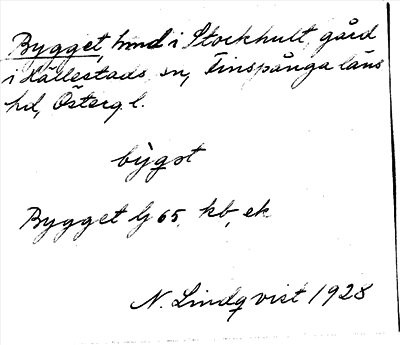 Bygget, hmd i Stockhult, gård
i Hällestads sn, Finspånga läns
hd, Österg l.
by̆gət
Bygget Gj 65, kb, ek
N. Lindqvist 1928